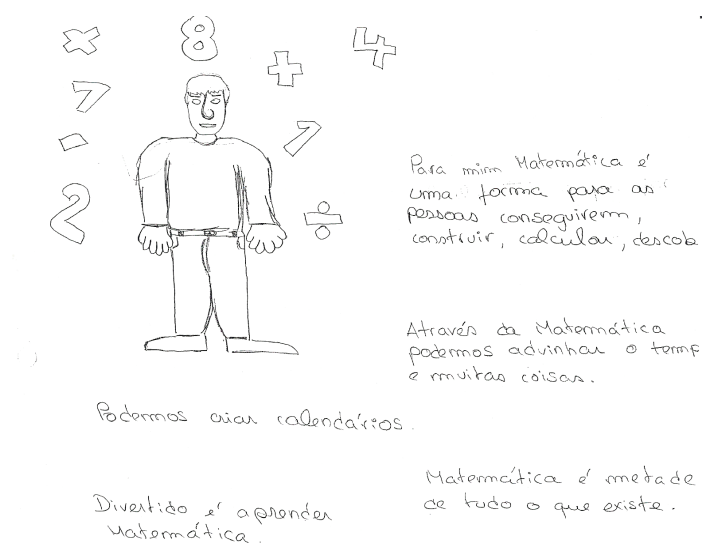 x 8 + 4
7 1
- 2 ÷
Para mim Matemática é
uma forma para as
pessoas conseguirem,
construir, calcular, descob
Através da Matemática
podemos advinhar o temp
e muitas coisas.
Podemos criar calendários.
Matemática é metade
de tudo o que existe.
Divertido é aprender
Matemática.